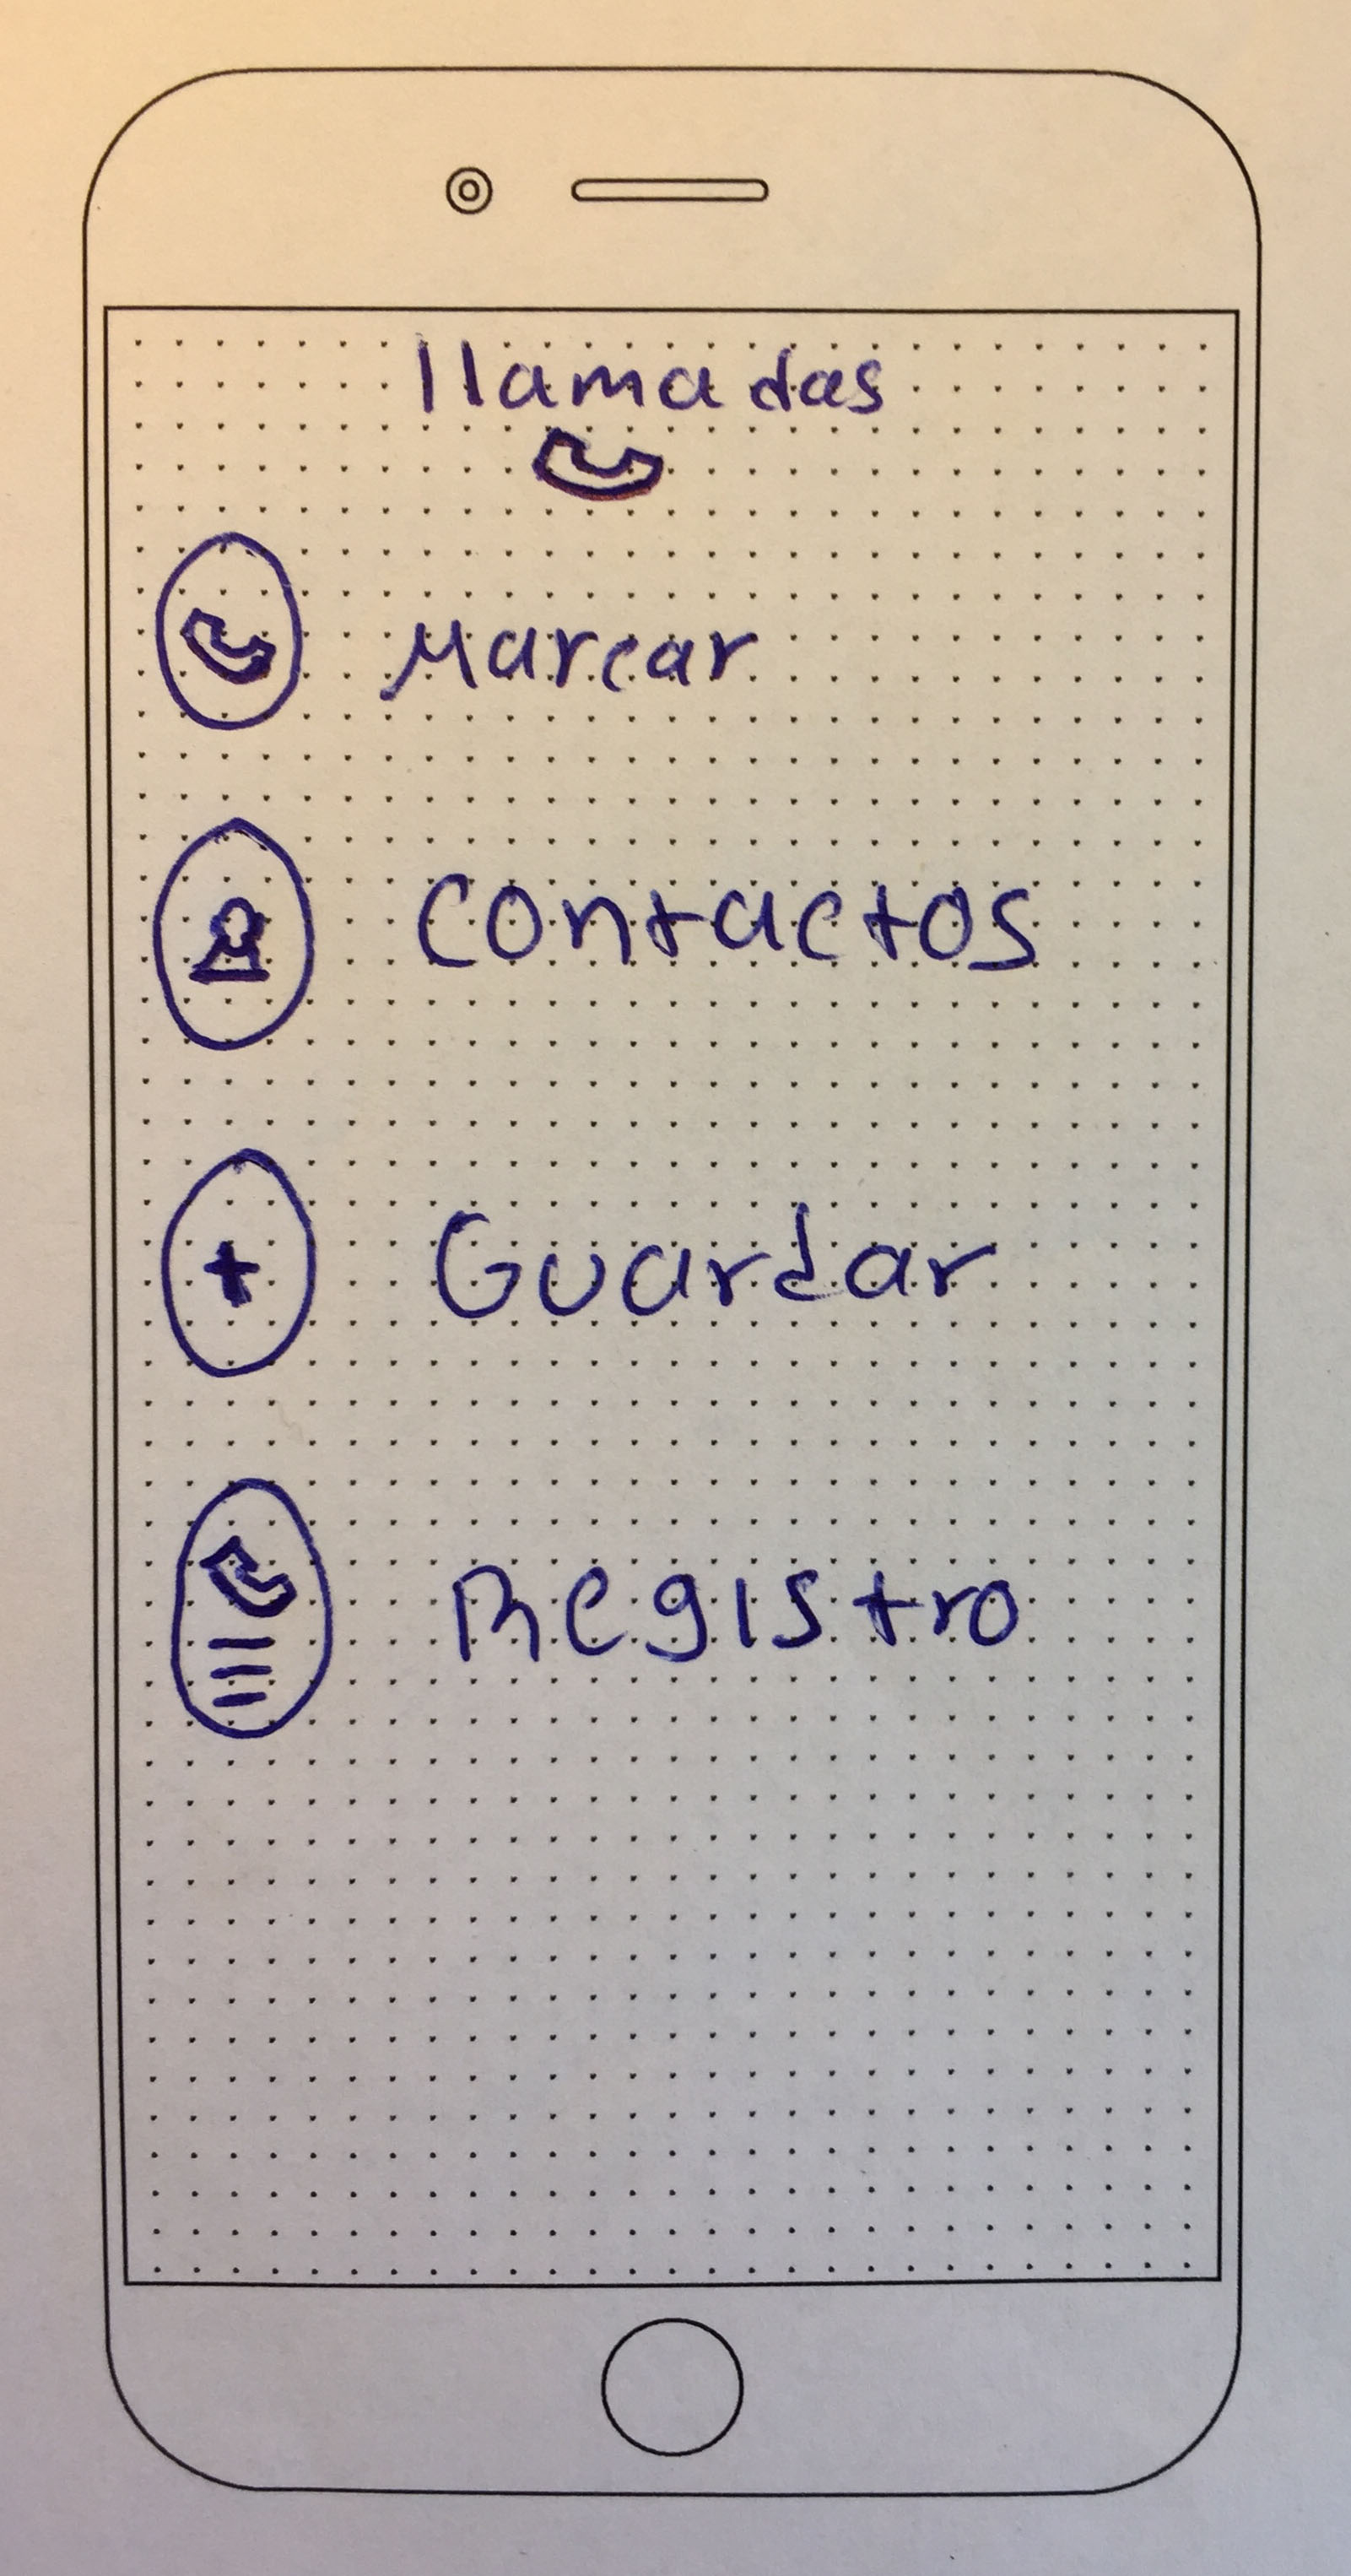 llamadas
Marcar
Contactos
Guardar
Registro